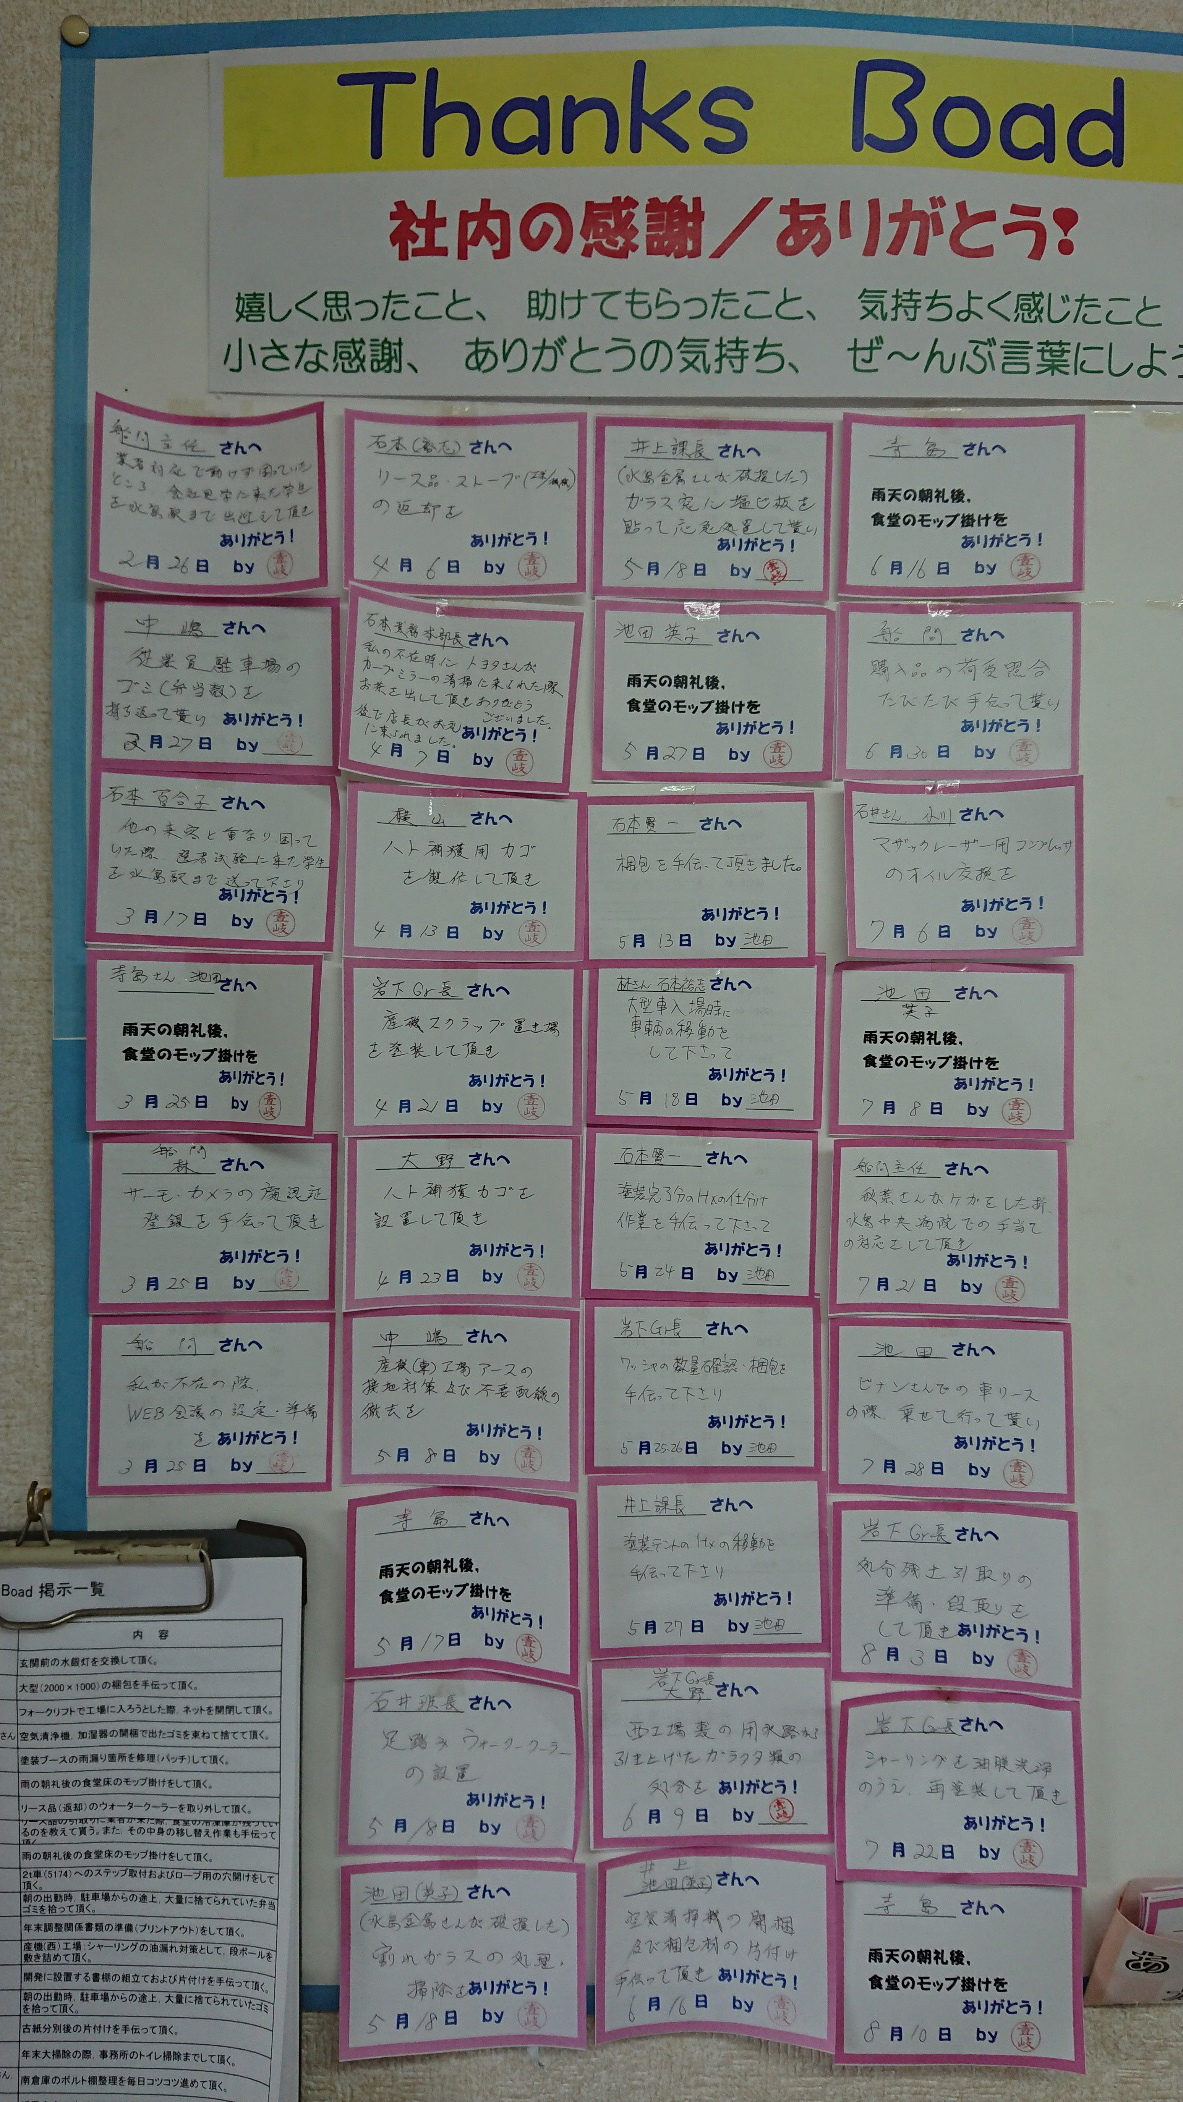 Thanks Boad
社内の感謝／ありがとう!
嬉しく思ったこと、 助けてもらったこと、 気持ちよく感じたこと
小さな感謝、 ありがとうの気持ち、 ぜ～んぶ言葉にしよう
船問主任 さんへ
業者対応で動けず困っていた
ところ、会社見学に来た学生
を水島駅まで出迎えして頂き
ありがとう!
2月26日 by 壹岐
中嶋 さんへ
従業員駐車場の
ゴミ(弁当殻)を
持ち帰って貰い ありがとう!
3月27日 by 壹岐
石本 百合子 さんへ
他の来客と重なり困って
いた際、選考試験に来た学生
を水島駅まで送って下さり
ありがとう!
3月17日 by 壹岐
寺島さん 池田さんへ
雨天の朝礼後、
食堂のモップ掛けを
ありがとう!
3月25日 by 壹岐
船問
林 さんへ
サーモ・カメラの顔認証
登録を手伝って頂き
ありがとう!
3月25日 by 壹岐
船問 さんへ
私が不在の際、
WEB会議の設定・準備
を ありがとう!
3月25日 by 壹岐
石本(裕志) さんへ
リース品・ストーブ
の返却を
ありがとう!
4月6日 by 壹岐
石本業務本部長 さんへ
私の不在時に トヨタさんが
カーブミラーの清掃に来られた際
お茶を出して頂きありがとう
ございました。
後で店長がお礼
に来られました。 ありがとう!
4月7日 by 壹岐
横山 さんへ
ハト捕獲用カゴ
を製作して頂き
ありがとう!
4月13日 by 壹岐
岩下Gr長 さんへ
産機スクラップ置き場
を塗装して頂き
ありがとう!
4月21日 by 壹岐
大野 さんへ
ハト捕獲カゴを
設置して頂き
ありがとう!
4月23日 by 壹岐
中嶋 さんへ
産機(東)工場アースの
接地対策及び不要配線の
撤去を
ありがとう!
5月8日 by 壹岐
寺島 さんへ
雨天の朝礼後、
食堂のモップ掛けを
ありがとう!
5月17日 by 壹岐
石井班長 さんへ
足踏みウォータークーラー
の設置
ありがとう!
5月18日 by 壹岐
池田(英子) さんへ
(水島金属さんが破損した)
割れガラスの処理・
掃除を ありがとう!
5月18日 by 壹岐
井上課長 さんへ
(水島金属さんが破損した)
ガラス窓に塩ビ板を
貼って応急処置して貰い
ありがとう!
5月18日 by 壹岐
池田 英子 さんへ
雨天の朝礼後、
食堂のモップ掛けを
ありがとう!
5月27日 by 壹岐
石本賢一 さんへ
梱包を手伝って頂きました。
ありがとう!
5月13日 by 池田
林さん 石本裕志 さんへ
大型車入場時に
車輌の移動を
して下さって
ありがとう!
5月18日 by 池田
石本賢一 さんへ
塗装完了分のHxの仕分け
作業を手伝って下さって
ありがとう!
5月24日 by 池田
岩下Gr長 さんへ
ワッシャの数量確認・梱包を
手伝って下さり
ありがとう!
5月25.26日 by 池田
井上課長 さんへ
塗装テントのHxの移動を
手伝って下さり
ありがとう!
5月27日 by 池田
岩下Gr長
大野 さんへ
西工場裏の用水路から
引き上げたガラクタ類の
処分を ありがとう!
6月9日 by 壹岐
井上
池田(英子) さんへ
空気清掃機の開梱
及び梱包材の片付け
手伝って頂き ありがとう!
6月16日 by 壹岐
寺島 さんへ
雨天の朝礼後、
食堂のモップ掛けを
ありがとう!
6月16日 by 壹岐
船問 さんへ
購入品の荷受照合
たびたび手伝って貰い
ありがとう!
6月30日 by 壹岐
石井さん 小川 さんへ
マザックレーザー用コンプレッサ
のオイル交換を
ありがとう!
7月6日 by 壹岐
池田
英子 さんへ
雨天の朝礼後、
食堂のモップ掛けを
ありがとう!
7月8日 by 壹岐
船問主任 さんへ
秋葉さんがケガをした折、
水島中央病院での手当て
の対応をして頂き
ありがとう!
7月21日 by 壹岐
池田 さんへ
ビナンさんでの車リース
の際、乗せて行って貰い
ありがとう!
7月28日 by 壹岐
岩下Gr長 さんへ
処分残土引取りの
準備・段取りを
して頂き ありがとう!
8月3日 by 壹岐
岩下Gr長 さんへ
シャーリングを油膜洗浄
のうえ、再塗装して頂き
ありがとう!
7月22日 by 壹岐
寺島 さんへ
雨天の朝礼後、
食堂のモップ掛けを
ありがとう!
8月10日 by 壹岐
Boad 掲示一覧
内 容
玄関前の水銀灯を交換して頂く。
大型(2000×1000)の梱包を手伝って頂く。
フォークリフトで工場に入ろうとした際、ネットを開閉して頂く。
さん 空気清浄機、加湿器の開梱で出たゴミを束ねて捨てて頂く。
塗装ブースの雨漏り箇所を修理(パッチ)して頂く。
雨の朝礼後の食堂床のモップ掛けをして頂く。
リース品(返却)のウォータークーラーを取り外して頂く。
リース品の引取りに業者が来た際、食堂の冷凍庫が残ってい
るのを教えて貰う。また、その中身の移し替え作業も手伝って
頂く。
雨の朝礼後の食堂床のモップ掛けをして頂く。
2t車(5174)へのステップ取付およびロープ用の穴開けをして
頂く。
朝の出勤時、駐車場からの途上、大量に捨てられていた弁当
ゴミを拾って頂く。
年末調整関係書類の準備(プリントアウト)をして頂く。
産機(西)工場:シャーリングの油漏れ対策として、段ボールを
敷き詰めて頂く。
開発に設置する書棚の組立ておよび片付けを手伝って頂く。
朝の出勤時、駐車場からの途上、大量に捨てられていたゴミ
を拾って頂く。
古紙分別後の片付けを手伝って頂く。
年末大掃除の際、事務所のトイレ掃除までして頂く。
さん、 南倉庫のボルト棚整理を毎日コツコツ進めて頂く。
あ